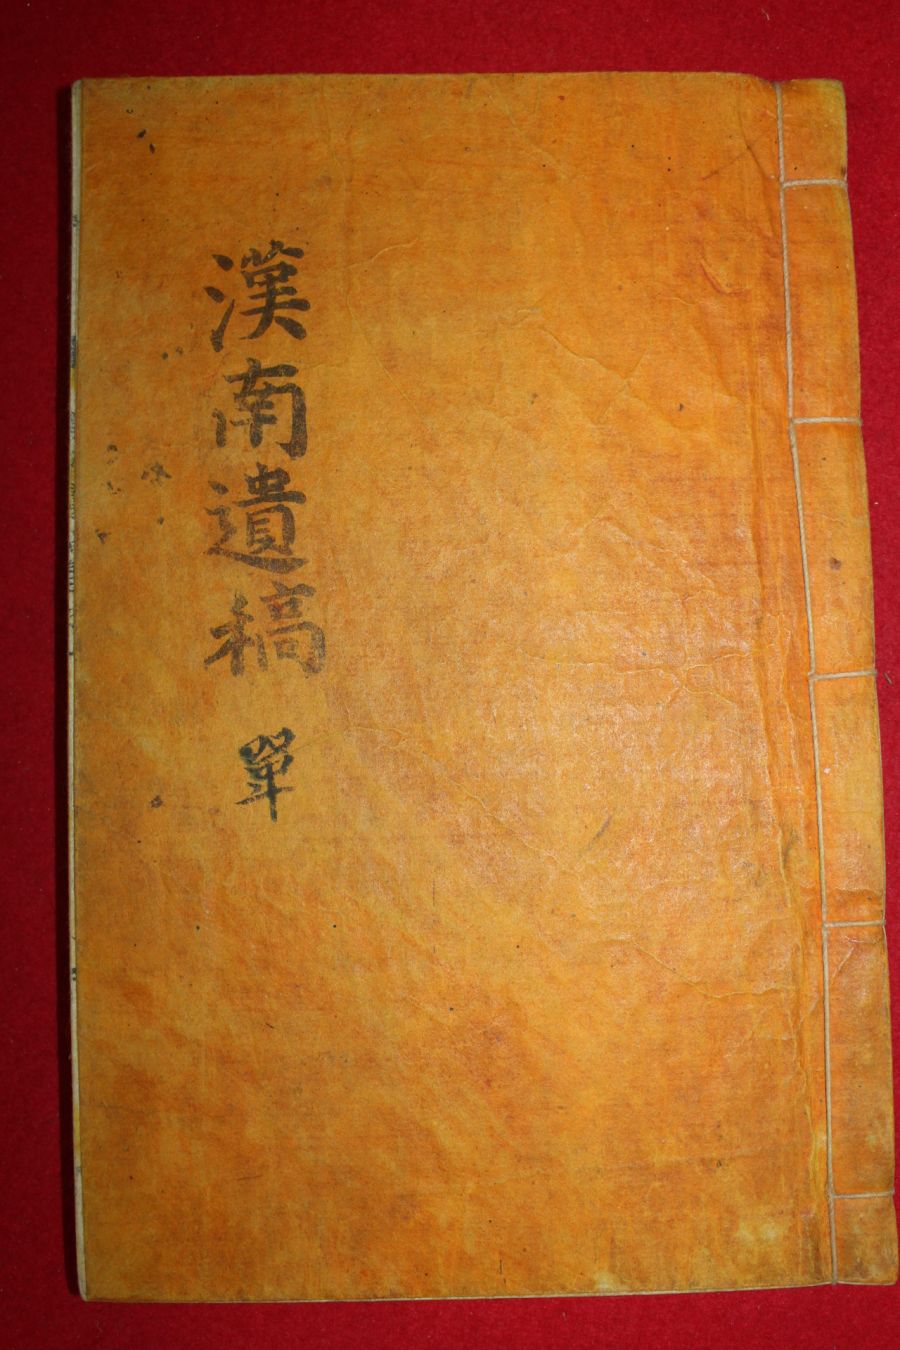 漢南遺稿 單